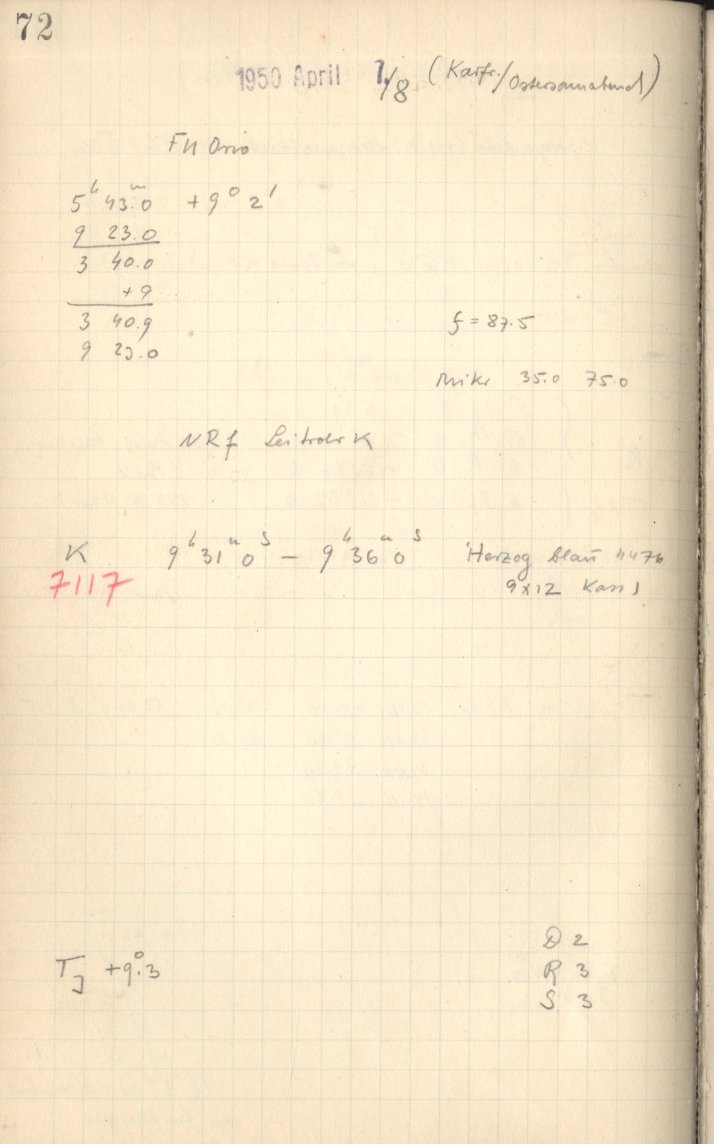 72
1950 April 7/8 (Karfr./Ostersonnabend)
FU Orio
5h 43m.0 +9° 2'
9 23.0
3 40.0
+9
3 40.9
9 23.0
f = 87.5
Mikr 35.0 75.0
NRf Leitrohr K
K 9h 31m 0s – 9h 36m 0s Herzog blau 4476
7117
9x12 Kass 1
D 2
TJ +9°.3
R 3
S 3